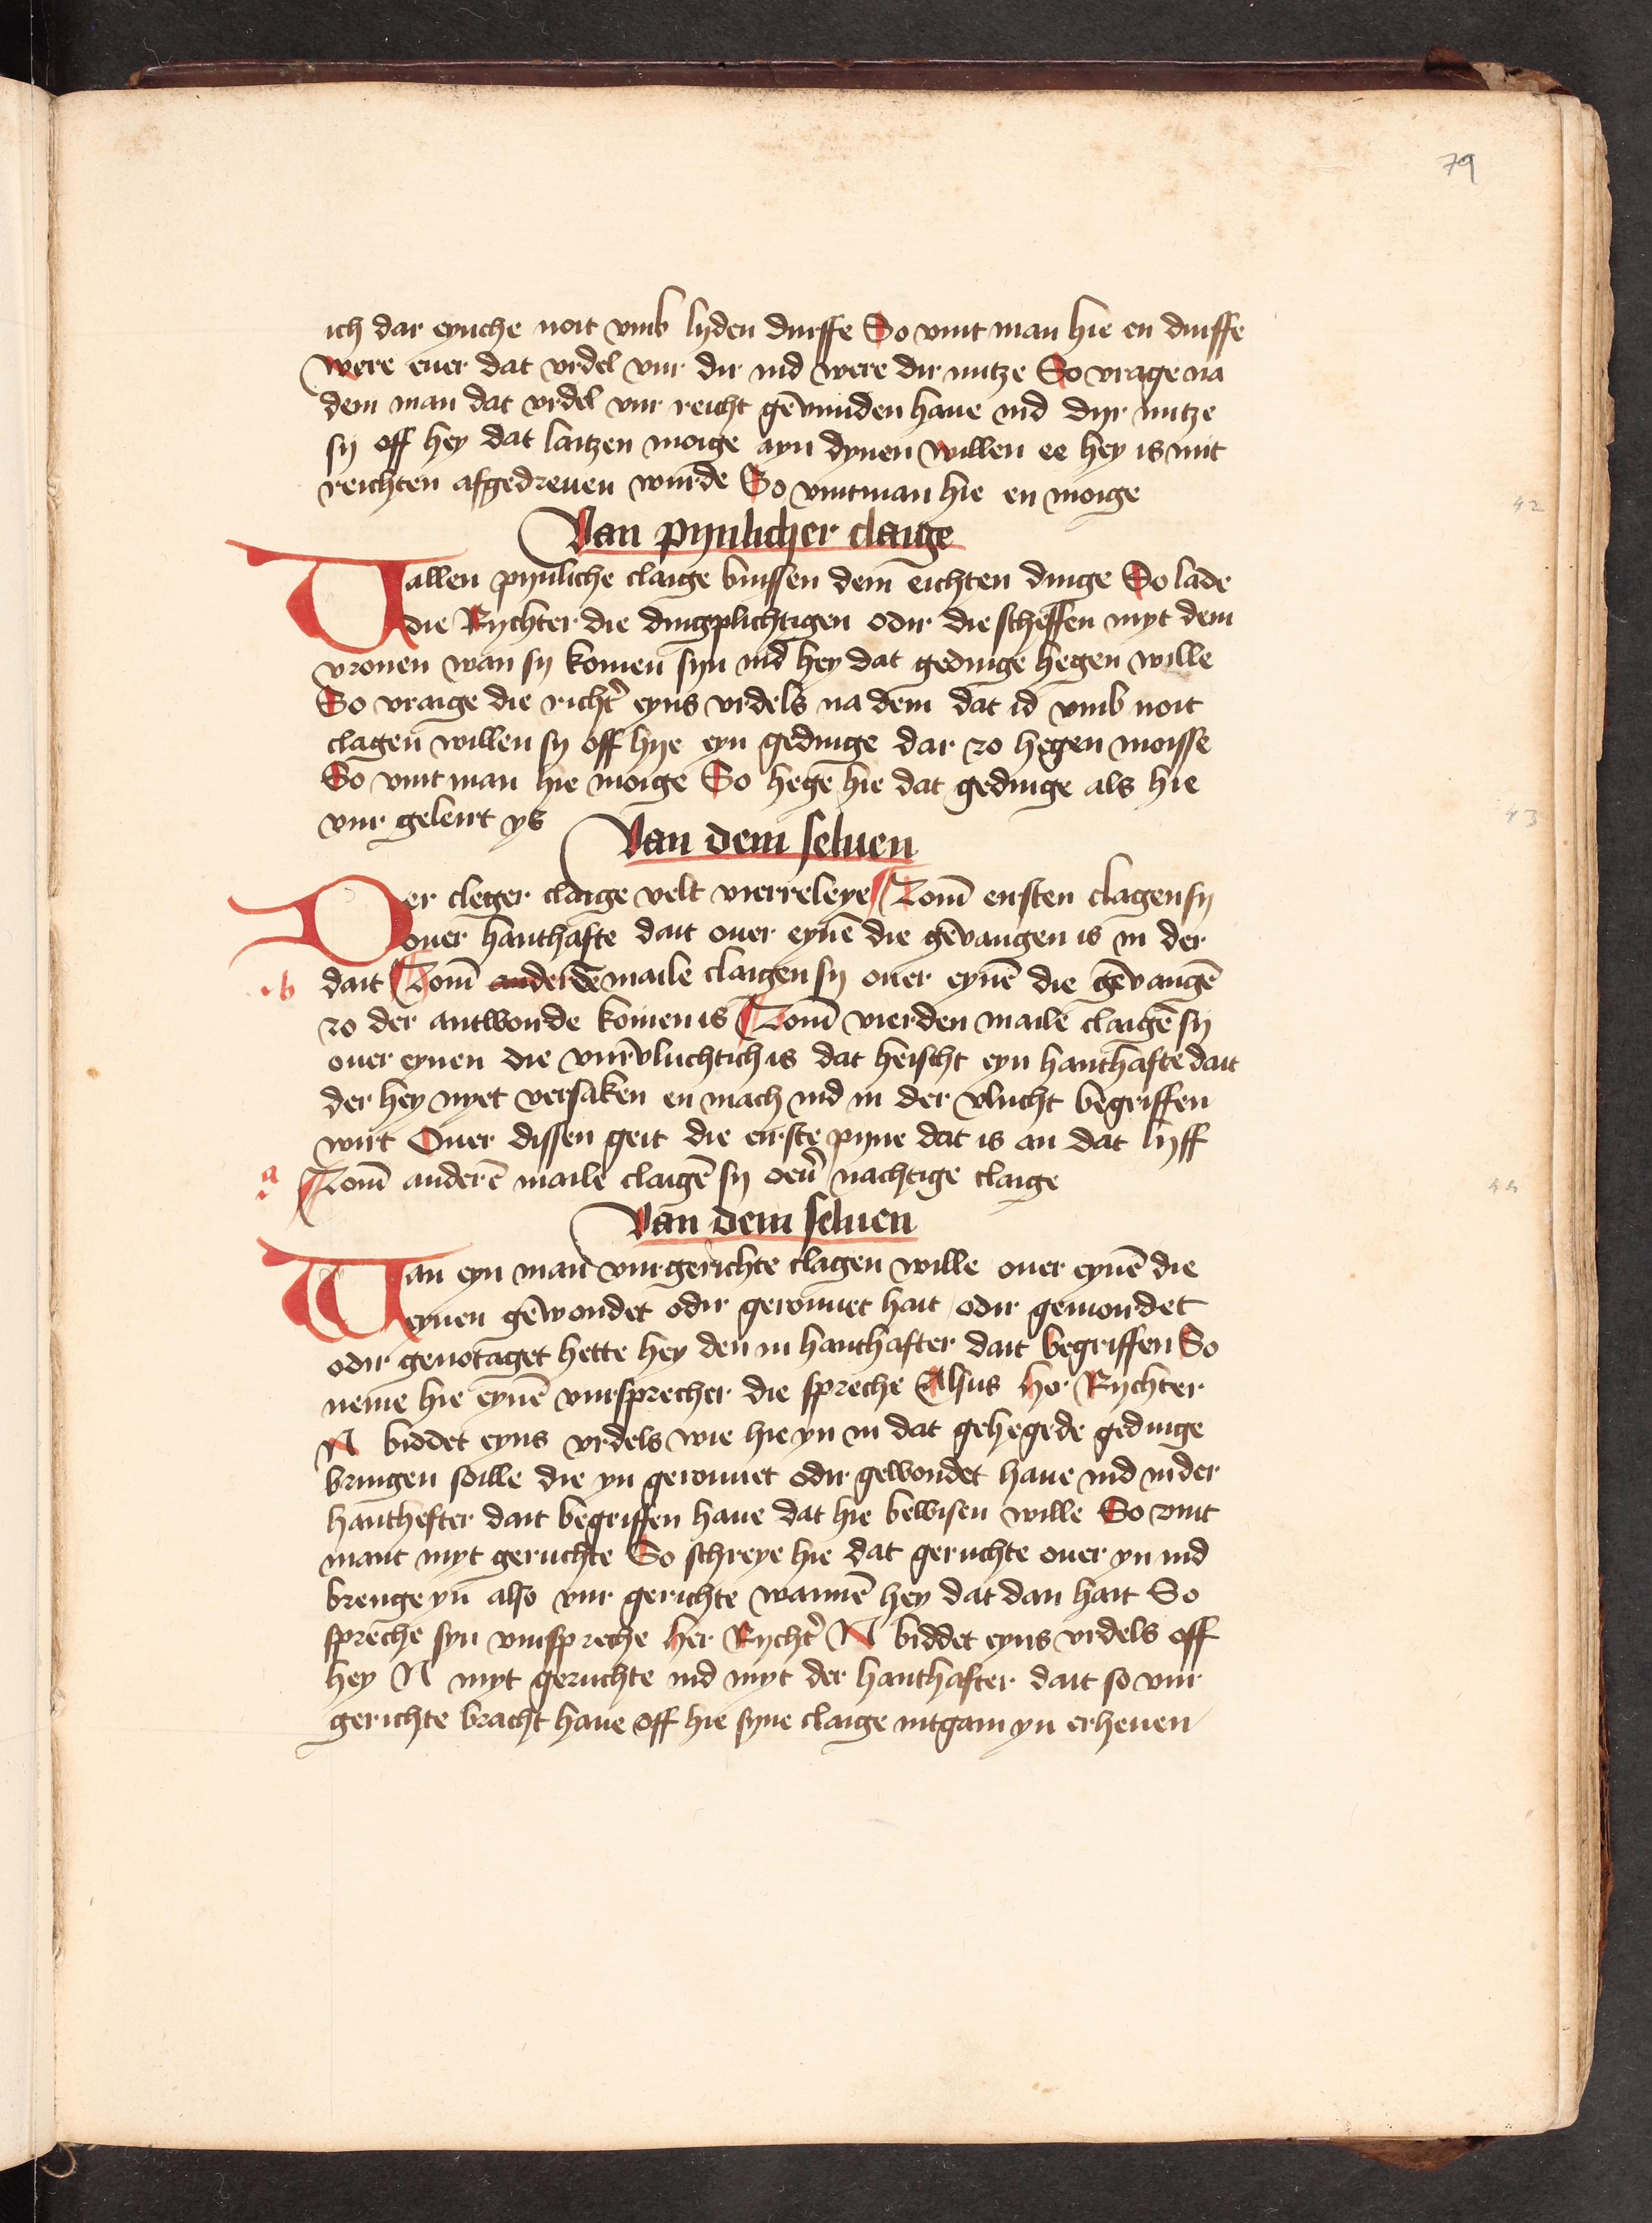 79
ich dar eyniche noit vmb lyden durffe So vint man hie en durffe
were euer dat vrdel vur dir ind were dir nutze So vrage na
dem man dat vrdel vur reicht gevunden haue ind dyr nutze
sy off hey dat laitzen moige ayn dynen willen ee hey is mit
reichten afgedreuen wurde So vintman hie en moige
42
Van pynlicher claige
Vallen pynliche claige buissen dem eichten dinge So lade
die Rychter die dingplichtigen odir die scheffen myt dem
vronen wan sy komen syn ind hey dat gedinge hegen wille
So vraige die richt̉ eyns vrdels na dem dat id vmb noit
clagen willen sy off hye eyn gedinge dar zo hegen moisse
So vint man hie moige So hege hie dat gedinge als hie
vur geleirt ys
43
Van dem seluen
Der cleger claige velt vierreleye Zom̄ eirsten clagen sy
ouer hanthafte dait ouer eynē die gevangen is in der
.b dait Zom̄ anderde maile claigen sy ouer eynē die gevangē
zo der antworde komen is Zom̄ vierden maile claigē sy
ouer eynen die vurvluchtich is dat heischt eyn hanthafte dait
der hey nyet versaken en mach ind in der vlucht begriffen
wirt Ouer dissen geit die eirste pyne dat is an dat lyff
a. Zom̄ anderē maile claigē sy oeủ nachtige claige
44
Van dem seluen
Wan eyn man vur gerichte clagen wille ouer eynē die
eynen gewondet odir gerouuet hait / odir gemordet
odir genotaget hette hey den in hanthafter dait begriffen So
neme hie eynē vursprecher die spreche Alsus her Rychter
N biddet eyns vrdels wie hie yn in dat gehegede gedinge
bringen soille die yn gerouuet odir gewondet haue ind in der
hanthefter dait begriffen haue dat hie bewisen wille So vint
mant myt geruchte So schreye hie dat geruchte ouer yn ind
brenge yn also vur gerichte wannē hey dat dan hait So
spreche syn vurspreche her Rycht̉ N biddet eyns vrdels off
hey N myt geruchte ind myt der hanthafter dait so vur
gerichte bracht haue off hie syne claige intgain yn erheuen